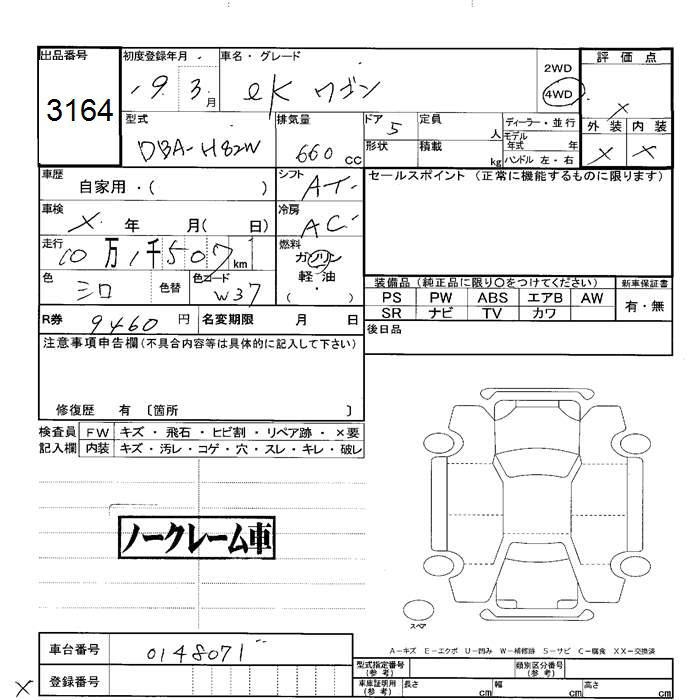 出品番号
3164
初度登録年月
19. 3 月
車名・グレード
eK ワゴン
2WD
4WD
評価点
×
外装 内装
× ×
型式
DBA-H82W
排気量
660 CC
ドア 5
形状
定員 人
積載 kg
ディーラー・並行
モデル年式 年
ハンドル 左・右
車歴
自家用・( )
シフト
AT
セールスポイント (正常に機能するものに限ります)
車検
× 年 月( 日)
冷房
AC
走行
10万1千507 km
燃料
ガソリン
軽油
( ・ )
色
シロ
色替
色コード
W37
装備品 (純正品に限り〇をつけてください)
新車保証書
PS PW ABS エアB AW
SR ナビ TV カワ
有・無
R券 9460 円
名変期限 月 日
後日品
注意事項申告欄(不具合内容等は具体的に記入して下さい)
修復歴 有 〔箇所 〕
検査員記入欄
FW キズ・飛石・ヒビ割・リペア跡・×要
内装 キズ・汚レ・コゲ・穴・スレ・キレ・破レ
ノークレーム車
スペア
A−キズ E−エクボ U−凹み W−補修跡 S−サビ C−腐食 XX−交換済
車台番号 0148071
登録番号
×
型式指定番号(参考)
類別区分番号(参考)
車庫証明用(参考)
長さ cm 幅 cm 高さ cm